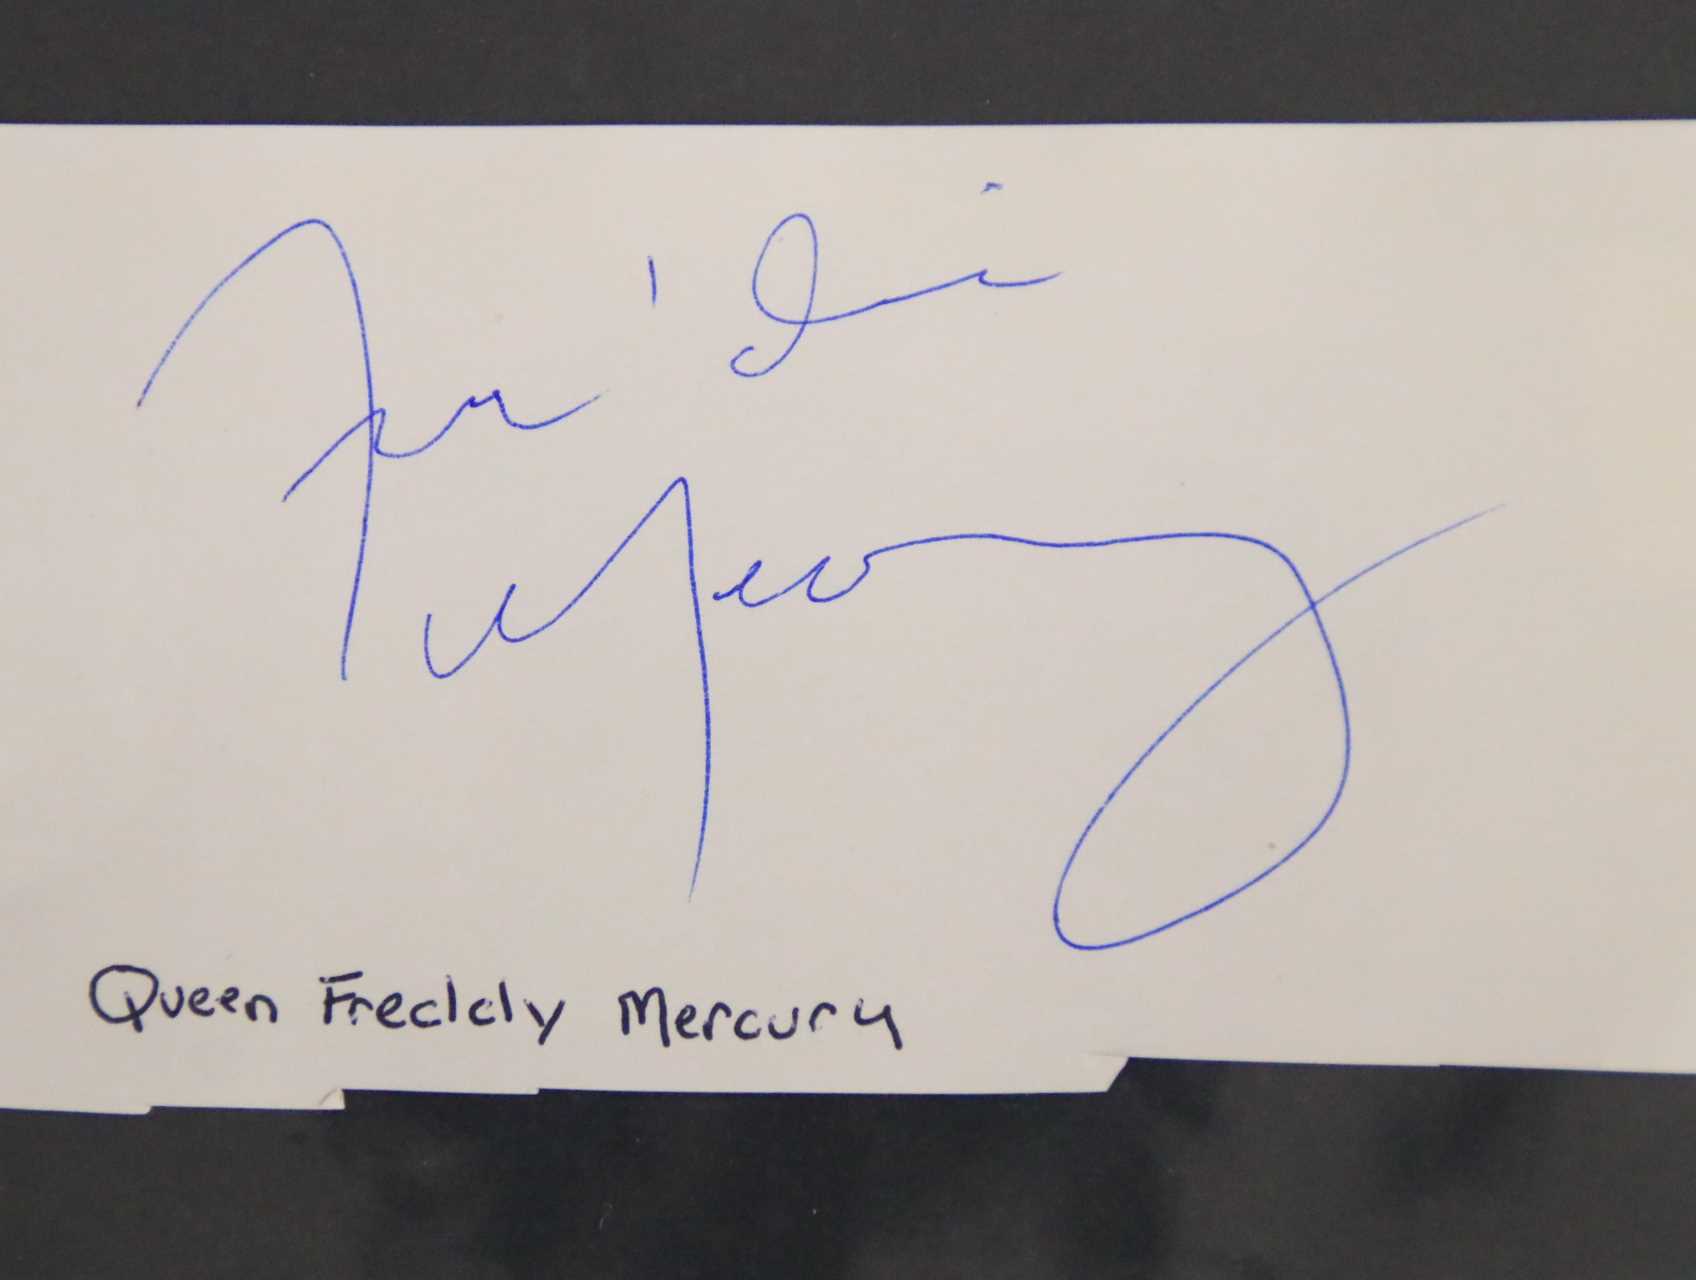 Freddie
Mercury
Queen Freddy Mercury